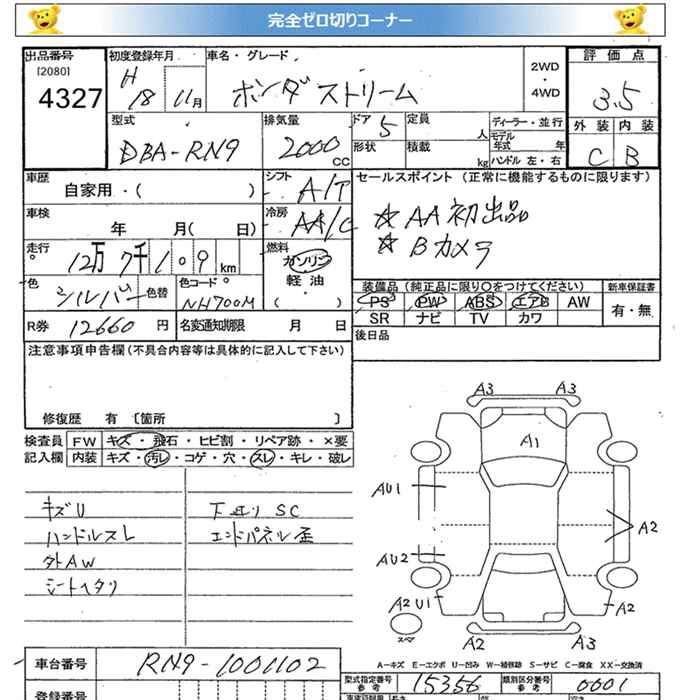 完全ゼロ切りコーナー
出品番号 初度登録年月 車名・グレード 2WD ・ 4WD 評価点
[2080] H
4327 18 11月 ホンダ ストリーム 3.5
型式 排気量 ドア 5 定員 人 ディーラー・並行 外装 内装
DBA-RN9 2000 CC 形状 積載 kg モデル年式 年 C B
ハンドル 左・右
車歴 シフト A/T セールスポイント (正常に機能するものに限ります)
自家用・( )
車検 冷房 AA/C ☆ AA初出品
年 月( 日) ☆ Bカメラ
走行 燃料
12万 7千 1 0 9 km ガソリン
軽油
・
( )
色 シルバー 色替 色コード NH700M 装備品 (純正品に限り○をつけてください) 新車保証書
PS PW ABS エアB AW 有・無
R券 12660 円 名変通知期限 月 日 SR ナビ TV カワ
注意事項申告欄(不具合内容等は具体的に記入して下さい) 後日品
修復歴 有 〔箇所 〕
検査員 FW キズ・飛石・ヒビ割・リペア跡・×要
記入欄 内装 キズ・汚レ・コゲ・穴・スレ・キレ・破レ
キズU 下廻り SC
ハンドルスレ エンドパネル歪
外AW
シートヘタリ
A3 A3
A1
AU1
A2
AU2
A2 U1 A2
スペア
A2 A3
A-キズ E-エクボ U-凹み W-補修跡 S-サビ C-腐食 XX-交換済
車台番号 RN9-1001102
型式指定番号 参考 15356 類別区分番号 参考 0001
登録番号